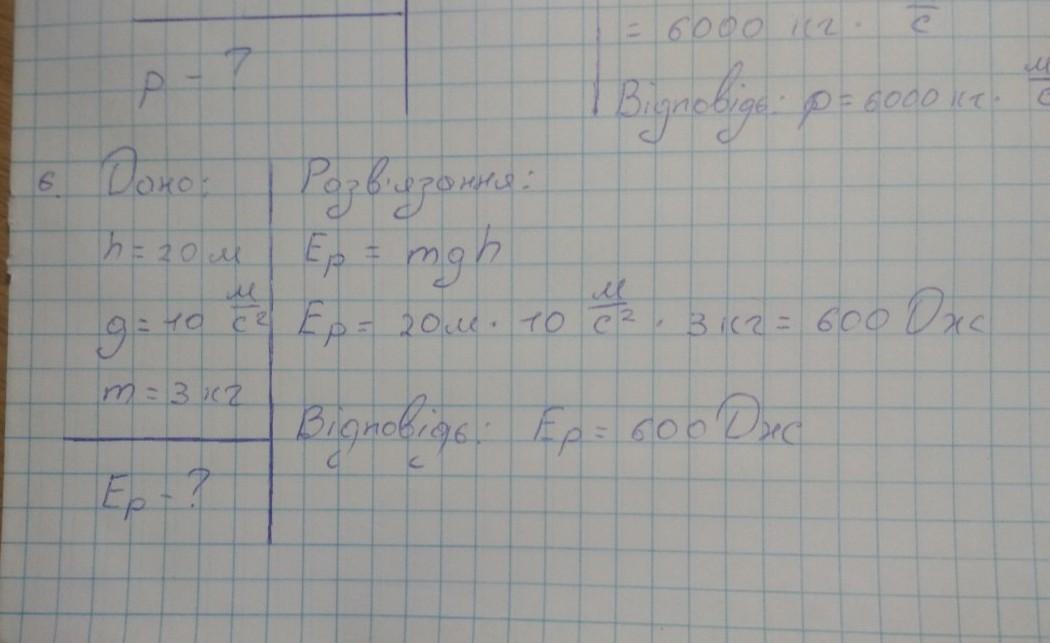 = 6000 кг · м/с
p - ?
Відповідь: p = 6000 кг · м/с
6. Дано:
h = 20 м
g = 10 м/с²
m = 3 кг
Ep - ?
Розв'язання:
Ep = mgh
Ep = 20м · 10 м/с² · 3 кг = 600 Дж
Відповідь: Ep = 600 Дж